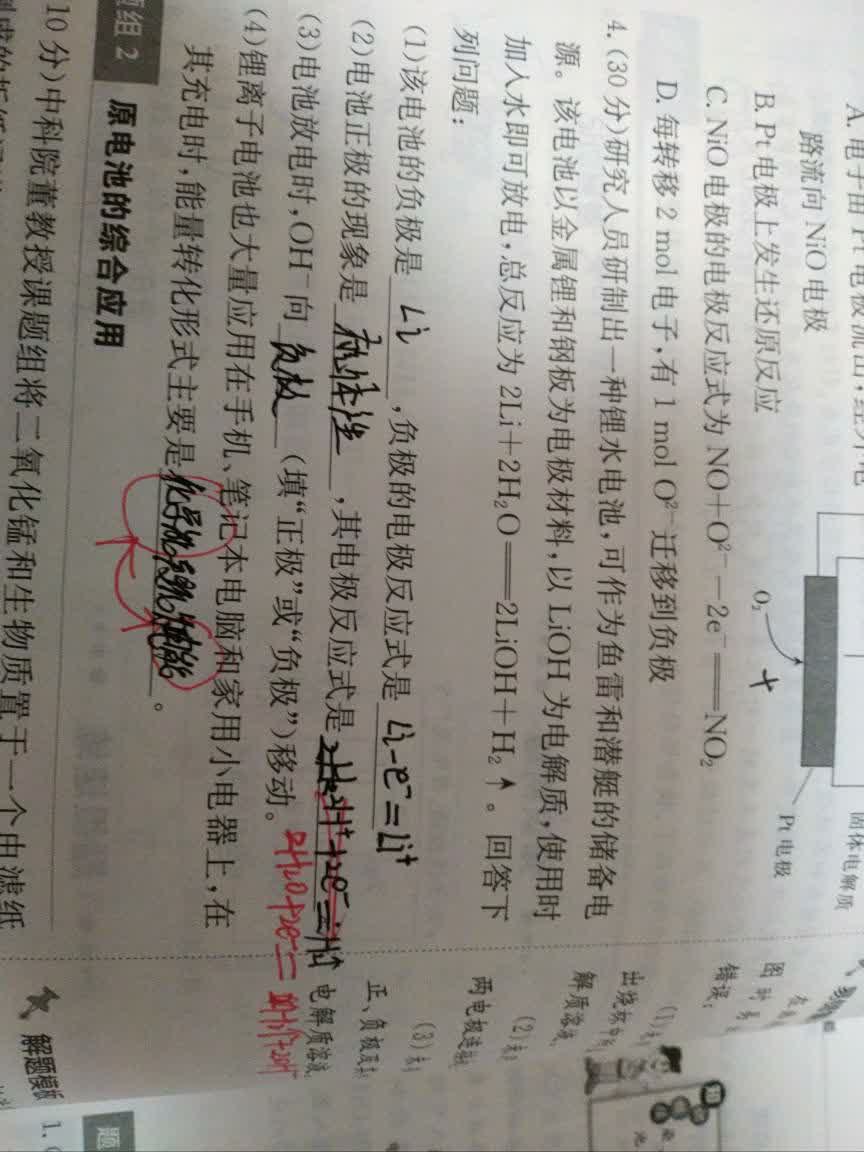 路流向 NiO 电极
B. Pt 电极上发生还原反应
C. NiO 电极的电极反应式为 NO+O²⁻-2e⁻══NO₂
D. 每转移 2 mol 电子,有 1 mol O²⁻迁移到负极
O₂
+
Pt 电极
固体电解质
4. (30 分)研究人员研制出一种锂水电池,可作为鱼雷和潜艇的储备电
源。该电池以金属锂和钢板为电极材料,以 LiOH 为电解质,使用时
加入水即可放电,总反应为 2Li+2H₂O══2LiOH+H₂↑。回答下
列问题:
(1)该电池的负极是 Li ,负极的电极反应式是 Li-e⁻=Li⁺
(2)电池正极的现象是 有气体产生 ,其电极反应式是 2H⁺+2e⁻=H₂↑
2H₂O+2e⁻=H₂↑+2OH⁻
(3)电池放电时,OH⁻向 负极 (填“正极”或“负极”)移动。
(4)锂离子电池也大量应用在手机、笔记本电脑和家用小电器上,在
其充电时,能量转化形式主要是 化学能 电能 。
题组 2 原电池的综合应用
10 分)中科院董教授课题组将二氧化锰和生物质置于一个由滤纸
错误:
(1)
解质溶液
(2)
两电极连接
(3)
正、负极及
电解质溶液
解题模板
1. (
题